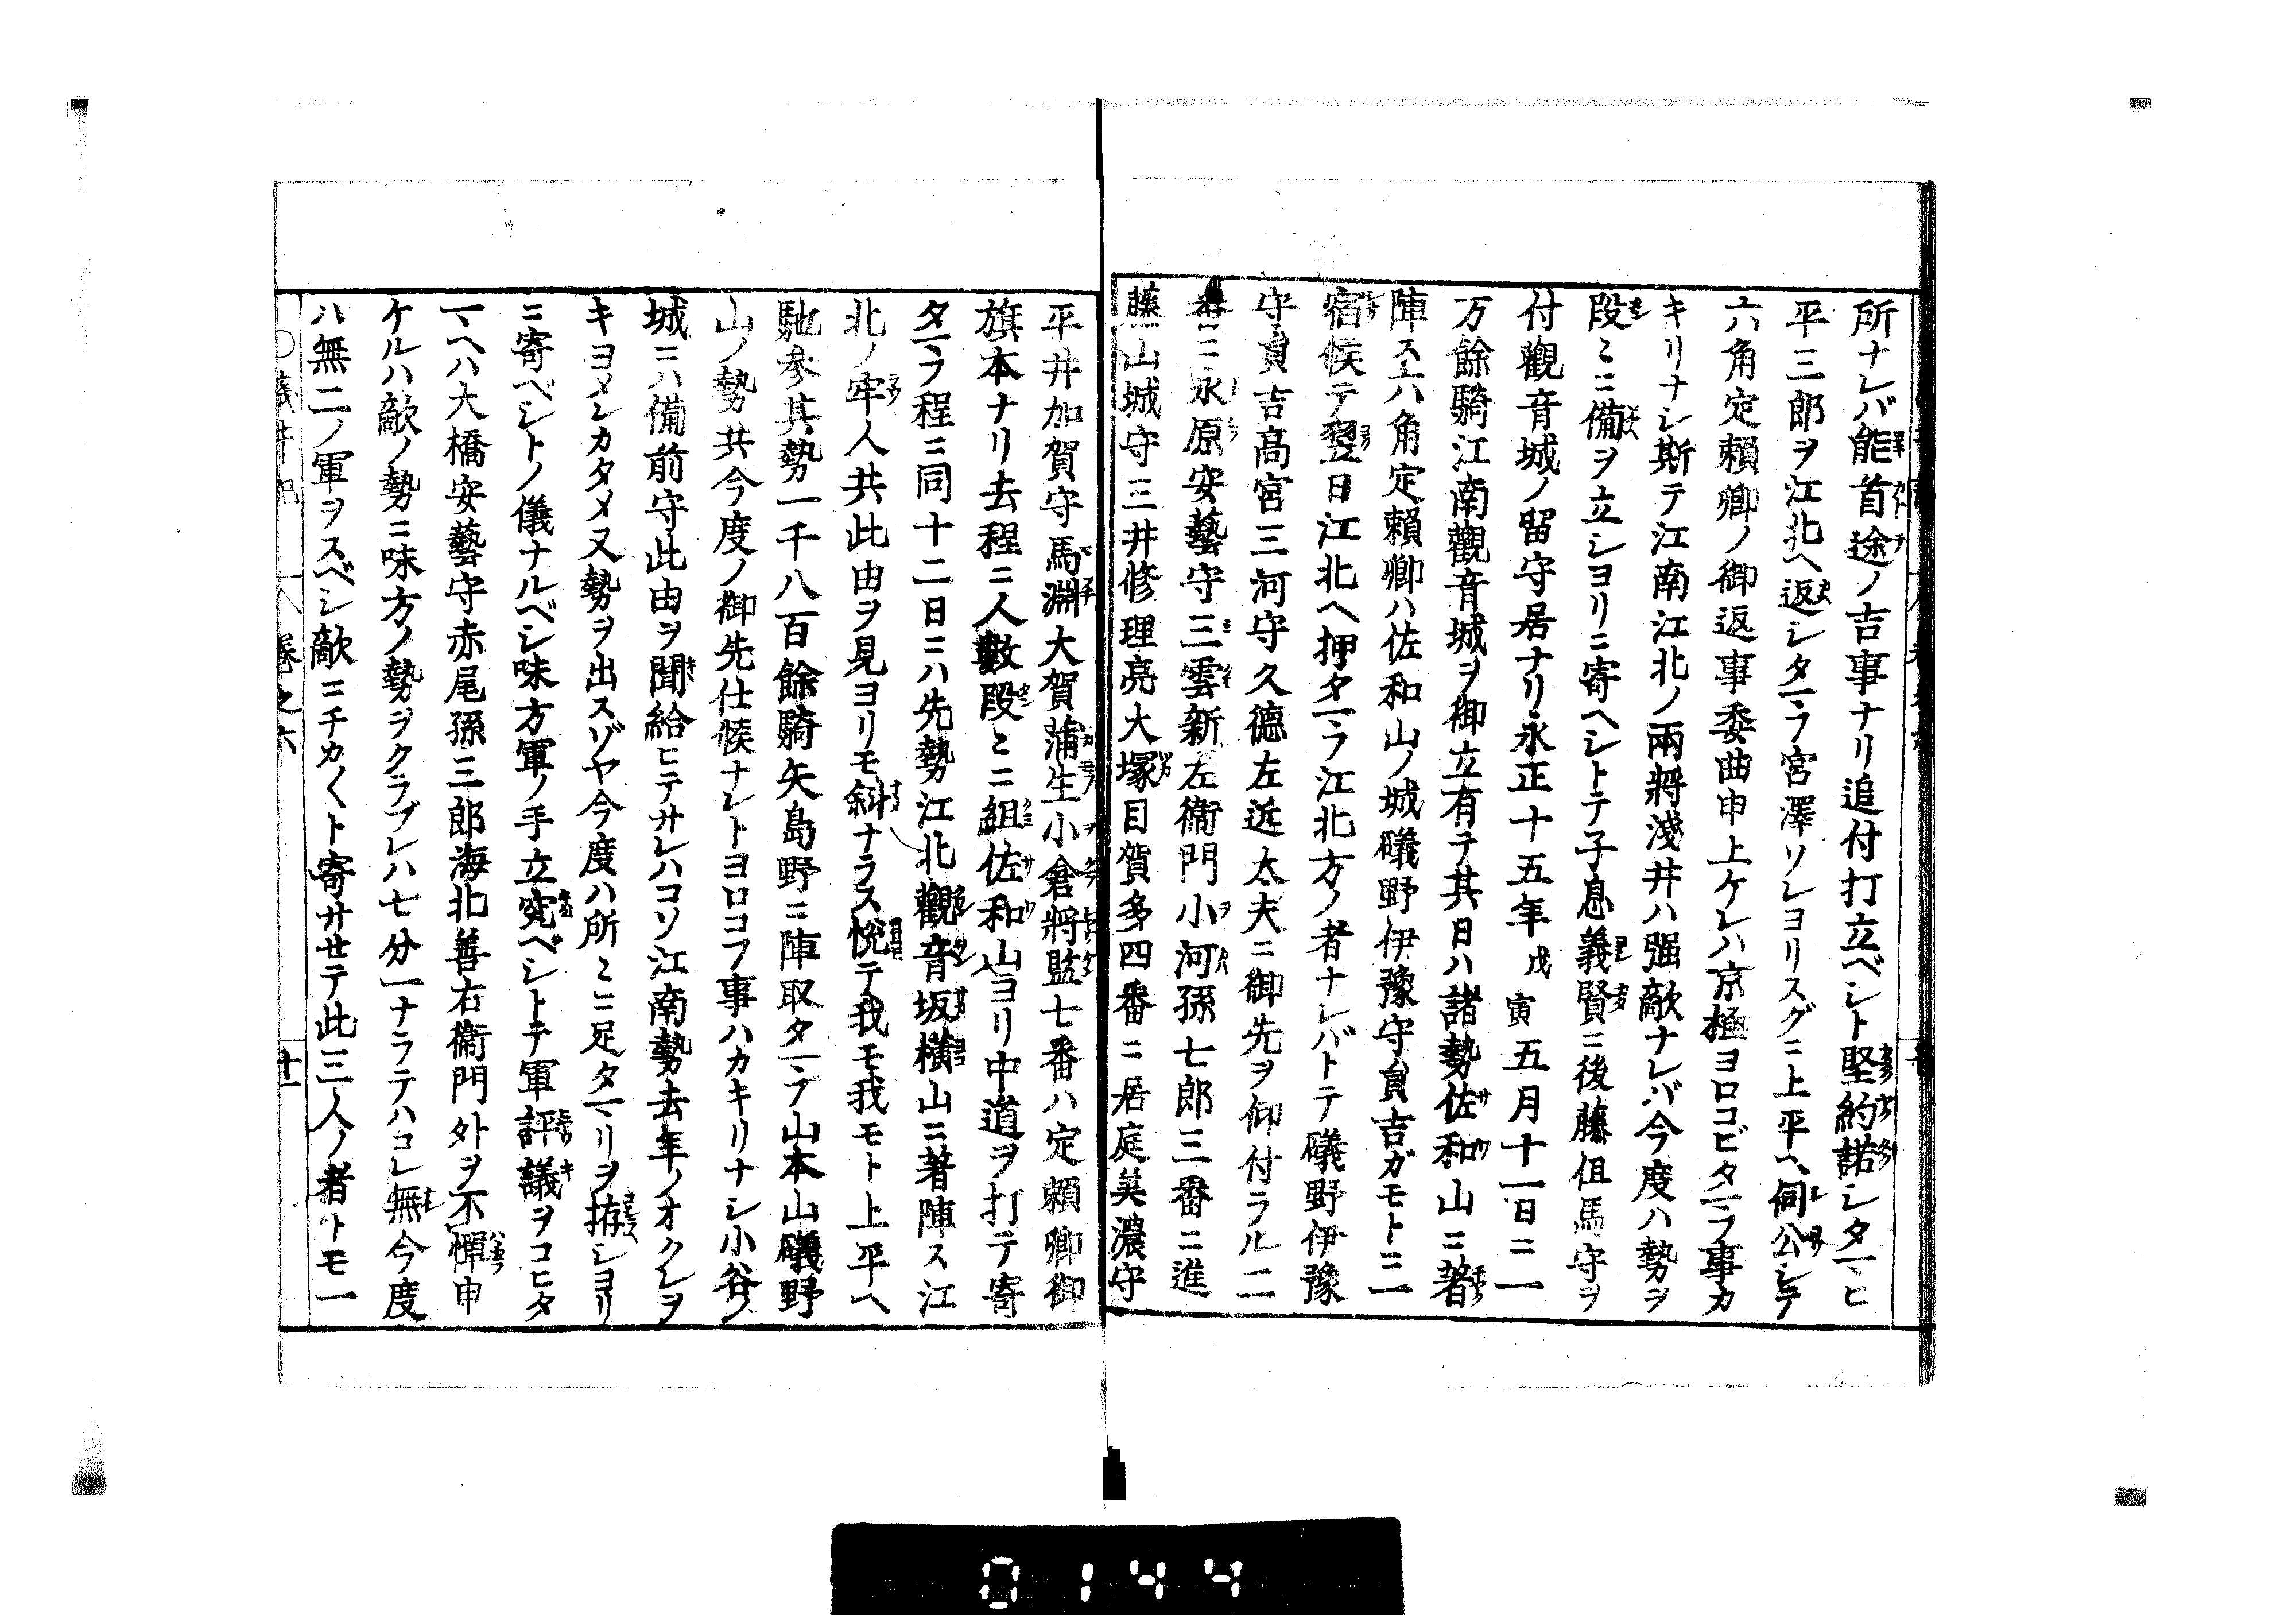 所ナレバ能首途ノ吉事ナリ追付打立ベシト堅約諾シタマヒ
平三郎ヲ江北ヘ返シタマフ宮澤ソレヨリスグニ上平ヘ伺公シテ
六角定頼卿ノ御返事委曲申上ケレハ京極ヨロコビタマフ事カ
キリナシ斯テ江南江北ノ兩將淺井ハ强敵ナレバ今度ハ勢ヲ
段ミニ備ヲ立シヨリニ寄ヘシトテ子息義賢ニ後藤但馬守ヲ
付觀音城ノ留守居ナリ永正十五年戊寅五月十一日ニ一
万餘騎江南觀音城ヲ御立有テ其日ハ諸勢佐和山ニ著
陣ス六角定頼卿ハ佐和山ノ城礒野伊豫守員吉ガモトニ一
宿候テ翌日江北ヘ押タマフ江北方ノ者ナレバトテ礒野伊豫
守員吉高宮三河守久德左近太夫ニ御先ヲ仰付ラル二
番ニ永原安藝守三雲新左衞門小河孫七郎三番ニ進
藤山城守三井修理亮大塚目賀多四番ニ居庭美濃守
平井加賀守馬淵大賀蒲生小倉將監七番ハ定頼卿御
旗本ナリ去程ニ人數段ミニ組佐和山ヨリ中道ヲ打テ寄
タマフ程ニ同十二日ニハ先勢江北觀音坂橫山ニ著陣ス江
北ノ牢人共此由ヲ見ヨリモ斜ナラス悅テ我モ我モト上平ヘ
馳參其勢一千八百餘騎矢島野ニ陣取タマフ山本山礒野
山ノ勢共今度ノ御先仕候ナレトヨロコフ事ハカキリナシ小谷ノ
城ニハ備前守此由ヲ聞給ヒテサレハコソ江南勢去年ノオクレヲ
キヨメンカタメ又勢ヲ出スゾヤ今度ハ所ミニ足タマリヲ拵シヨリ
ニ寄ベシトノ儀ナルベシ味方軍ノ手立究ベシトテ軍評議ヲコヒタ
マヘハ大橋安藝守赤尾孫三郎海北善右衞門外ヲ不憚申
ケルハ敵ノ勢ニ味方ノ勢ヲクラブレハ七分一ナラテハコレ無今度
ハ無二ノ軍ヲスベシ敵ニチカ〱ト寄サセテ此三人ノ者トモ一
卷之六
廿一
0144